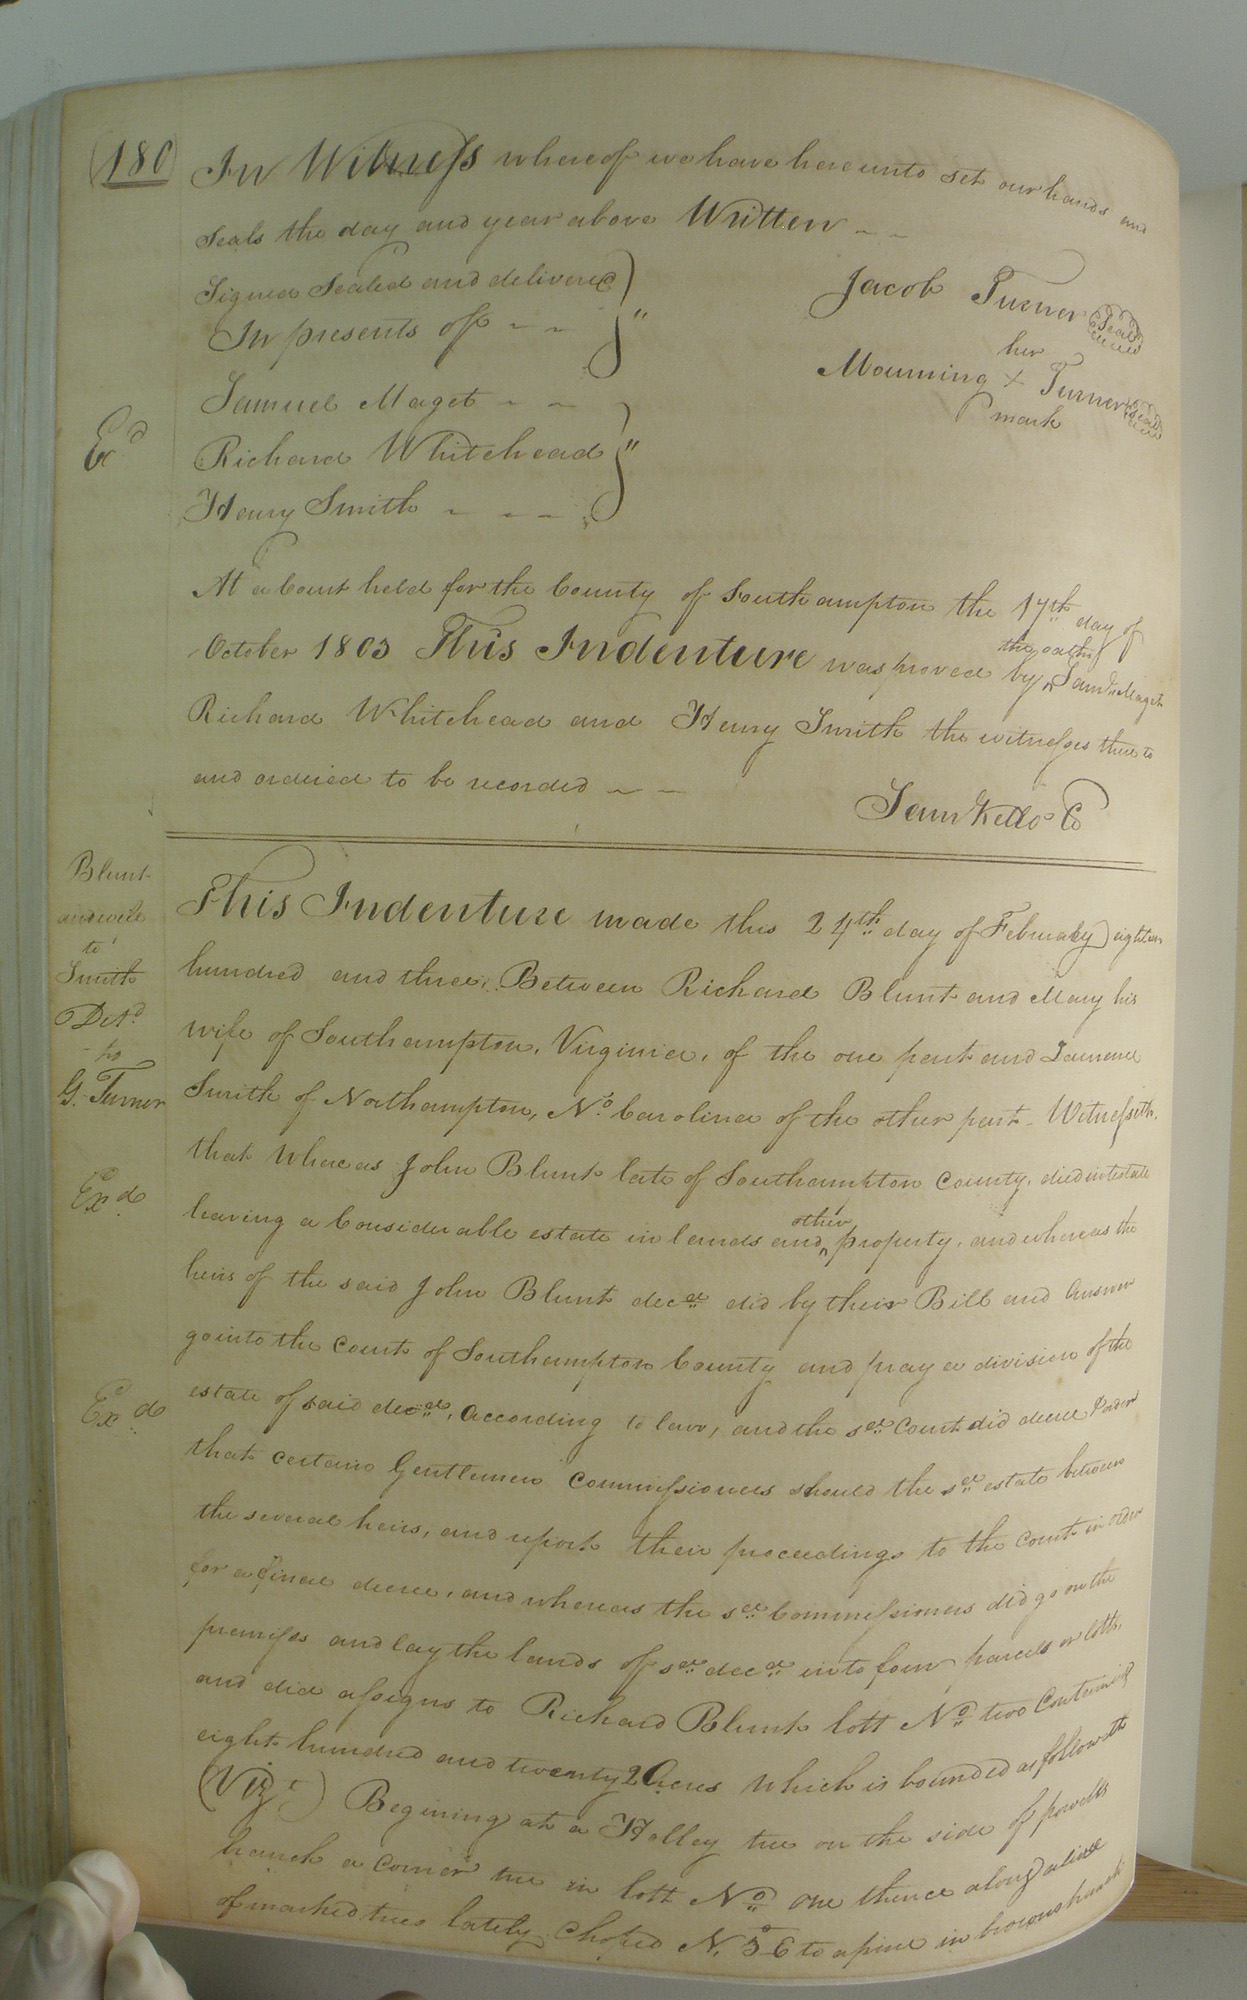 180
In Witness whereof we have hereunto set our hands and
Seals the day and year above Written
Signed Sealed and delivered
In presents off
Jacob Turner Seal
her
Mourning X Turner Seal
mark
Samuel Maget
Ex d
Richard Whitehead
Henry Smith
At a Court held for the County of Southampton the 17th day of
October 1803 This Indenture was proved by the oaths of Saml. Maget
Richard Whitehead and Henry Smith the witnesses there to
and ordered to be recorded
Sam Kello C
Blunt
and wife
to
Smith
Deld
to
G. Turner
Ex d
Ex d
This Indenture made this 24th day of February eighteen
hundred and three, Between Richard Blunt and Mary his
wife of Southampton, Virginia, of the one part and Laurence
Smith of Northampton, No. Carolina of the other part - Witnesseth,
that whereas John Blunt late of Southampton County, died intestate
leaving a Considerable estate in lands and other property, and whereas the
heirs of the said John Blunt decd did by their Bill and Answer
go into the Court of Southampton County and pray a division of the
estate of said decd, according to law, and the sd Court did decree & order
that certain Gentlemen Commissioners should the sd estate between
the several heirs, and report their proceedings to the Court in order
for a final decree, and whereas the sd Commissioners did go on the
premises and lay the lands of sd decd into four parcels or lotts,
and did assigns to Richard Blunt lott No two Containing
eight hundred and twenty 2 Acres which is bounded as followeth
(Viz:) Begining at a Holley tree on the side of powells
branch a corner tree in lott No one thence along a line
of marked trees lately choped N. 56 to a pine in browns